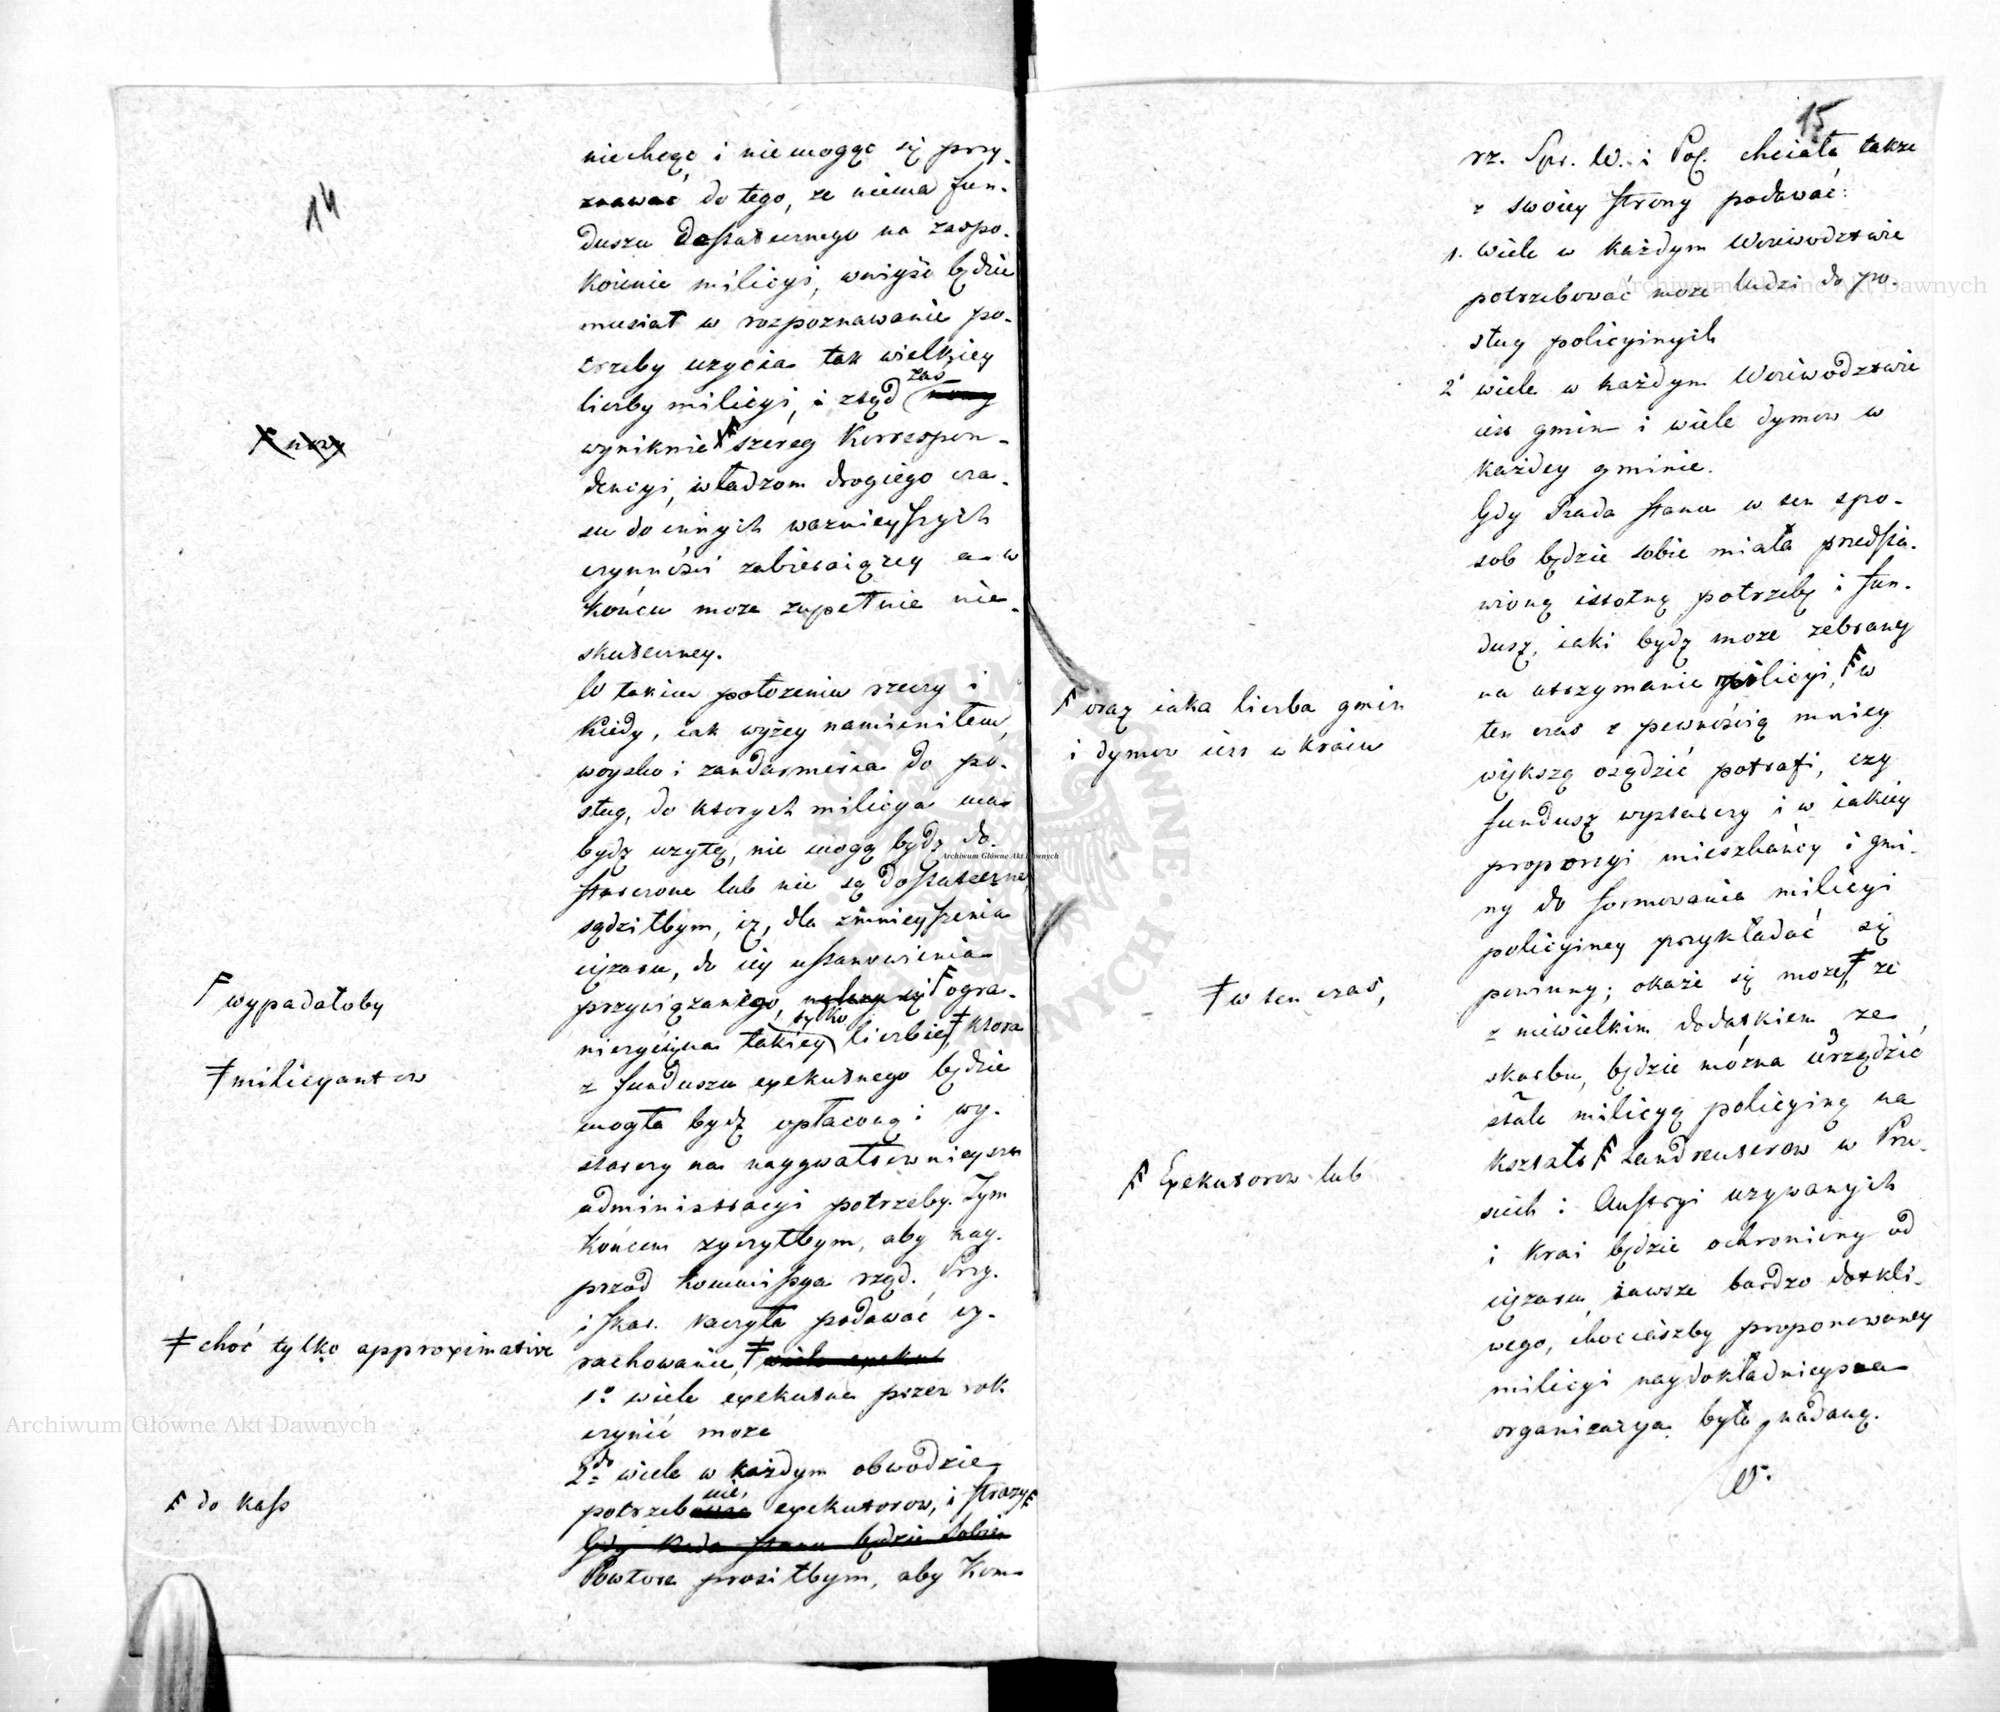 14
niechcąc i niemogąc się przy-
znawać do tego, że niema fun-
duszu dostatecznego na zaspo-
koienie milicyi, wniyść będzie
musiał w rozpoznawanie po-
trzeby użycia tak wielkiey
liczby milicyi, i ztąd zaś
wyniknie szereg korrespon-
dencyi, władzom drogiego cza-
su do innych ważnieyszych
czynności zabieraiącey a w
końcu może zupełnie nie-
skuteczney.
W takim położeniu rzeczy i
kiedy, iak wyżey namieniłem,
woysko i żandarmeria do po-
sług, do ktorych milicya ma
bydź użytą, nie mogą bydź do-
starczone lub nie są dostateczne,
sądziłbym, iż, dla zmnieyszenia
ciężaru, do iey ustanowienia
przywiązanego, należy się F ogra-
niczyć na takiey tylko liczbie ǂ ktora
z funduszu exekutnego będzie
mogła bydź opłaconą i wy-
starczy na naygwałtownieysze
administracyi potrzeby. Tym
końcem życzyłbym, aby nay-
przod Kommissya rząd. Przy.
i Skar. raczyła podawać wy-
rachowanie, ǂ wiele exekut
1o wiele exekutne przez rok
czynić może
2do wiele w każdym obwodzie
potrzeba nie, exekutorow, i straży F
Gdy Rada Stanu będzie sobie
Powtore prosiłbym, aby Kom-
F nowy
F wypadałoby
ǂ milicyantow
ǂ choć tylko approximative
F do kass
15
rz. Spr. W. i Pol. chciała także
z swoiey strony podawać:
1. Wiele w każdym Woiewodztwie
potrzebować może ludzi do po-
sług policyinych
2. wiele w każdym Woiewodztwie
iest gmin i wiele dymow w
każdey gminie.
Gdy Rada Stanu w ten spo-
sob będzie sobie miała przedsta-
wioną istotną potrzebę i fun-
dusz, iaki bydź może zebrany
na utrzymanie milicyi, F w
ten czas z pewnością mniey
większą osądzić potrafi, czy
fundusz wystarczy i w iakiey
proporcyi mieszkańcy i gmi-
ny do formowania milicyi
policyiney przykładać się
powinny; okaże się może, ǂ że
z niewielkim dodatkiem ze
skarbu, będzie można urządzić
stałe milicyą policyiną na
kształt F Landreuterow w Pru-
siech i Austryi używanych
i krai będzie ochroniony od
ciężaru zawsze bardzo dotkli-
wego, chociażby proponowaney
milicyi naydokładnieysza
organizacya była nadaną.
F oraz iaka liczba gmin
i dymow iest w kraiu
ǂ w ten czas,
F Exekutorow lub
Archiwum Główne Akt Dawnych
Archiwum Główne Akt Dawnych
Archiwum Główne Akt Dawnych